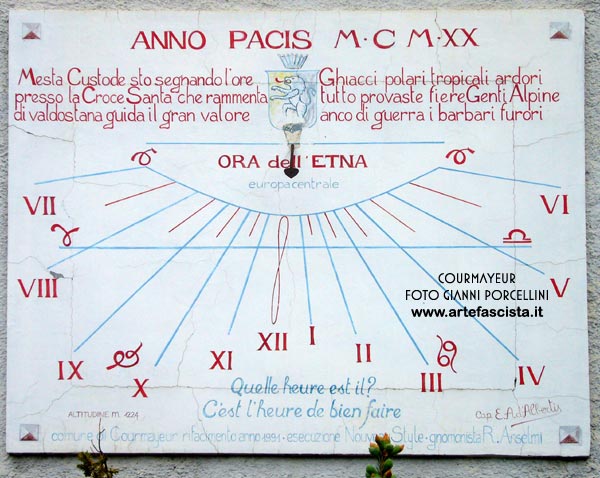 ANNO PACIS M·C M·XX
Mesta Custode sto segnando l'ore
presso la Croce Santa che rammenta
di valdostana guida il gran valore
Ghiacci polari tropicali ardori
tutto provaste fiere Genti Alpine
anco di guerra i barbari furori
ORA dell'ETNA
europa centrale
VII
VI
VIII
V
IX
X
XI
XII
I
II
III
IV
COURMAYEUR
FOTO GIANNI PORCELLINI
www.artefascista.it
Quelle heure est il?
C'est l'heure de bien faire
ALTITUDINE m. 1224
Cap. E. A. d'Albertis
comune di Courmayeur rifacimento anno 1991 · esecuzione Nouveau Style · gnomonista R. Anselmi